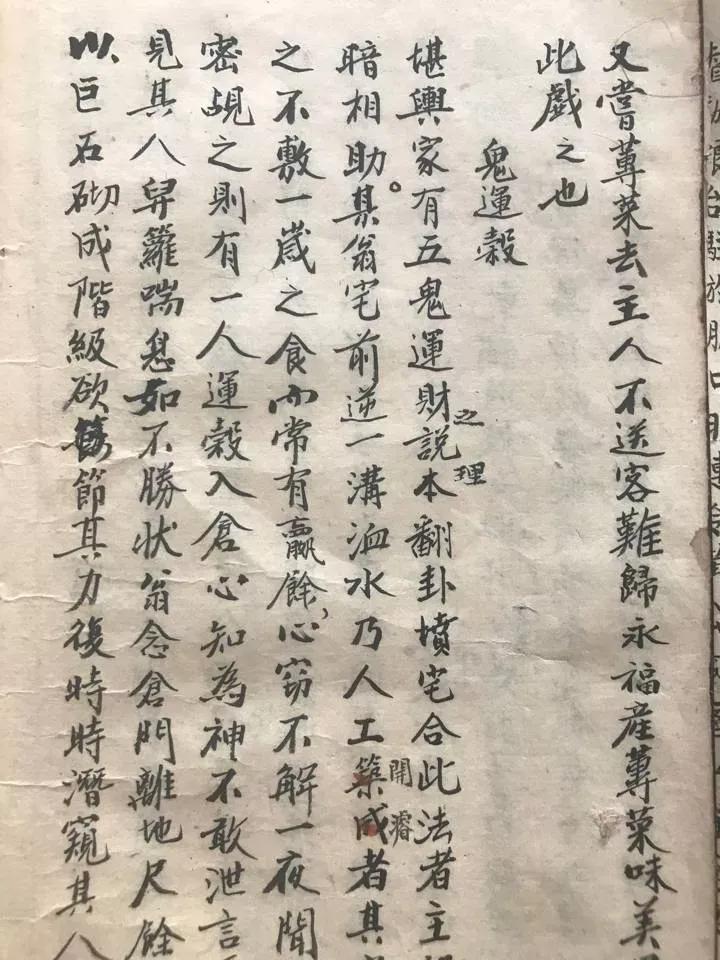 又嘗蓴菜去主人不送客難歸永福産蓴菜味美
此戲之也
鬼運穀
堪輿家有五鬼運財之說理本翻卦墳宅合此法者主
暗相助其翁宅前逆一溝洫水乃人工築成開濬者其
之不敷一歲之食而常有贏餘心窃不解一夜聞
密覘之則有一人運穀入倉心知為神不敢泄言
見其人舁籮喘息如不勝状翁念倉門離地尺餘
以巨石砌成階級欲節其力後時時潛窺其人